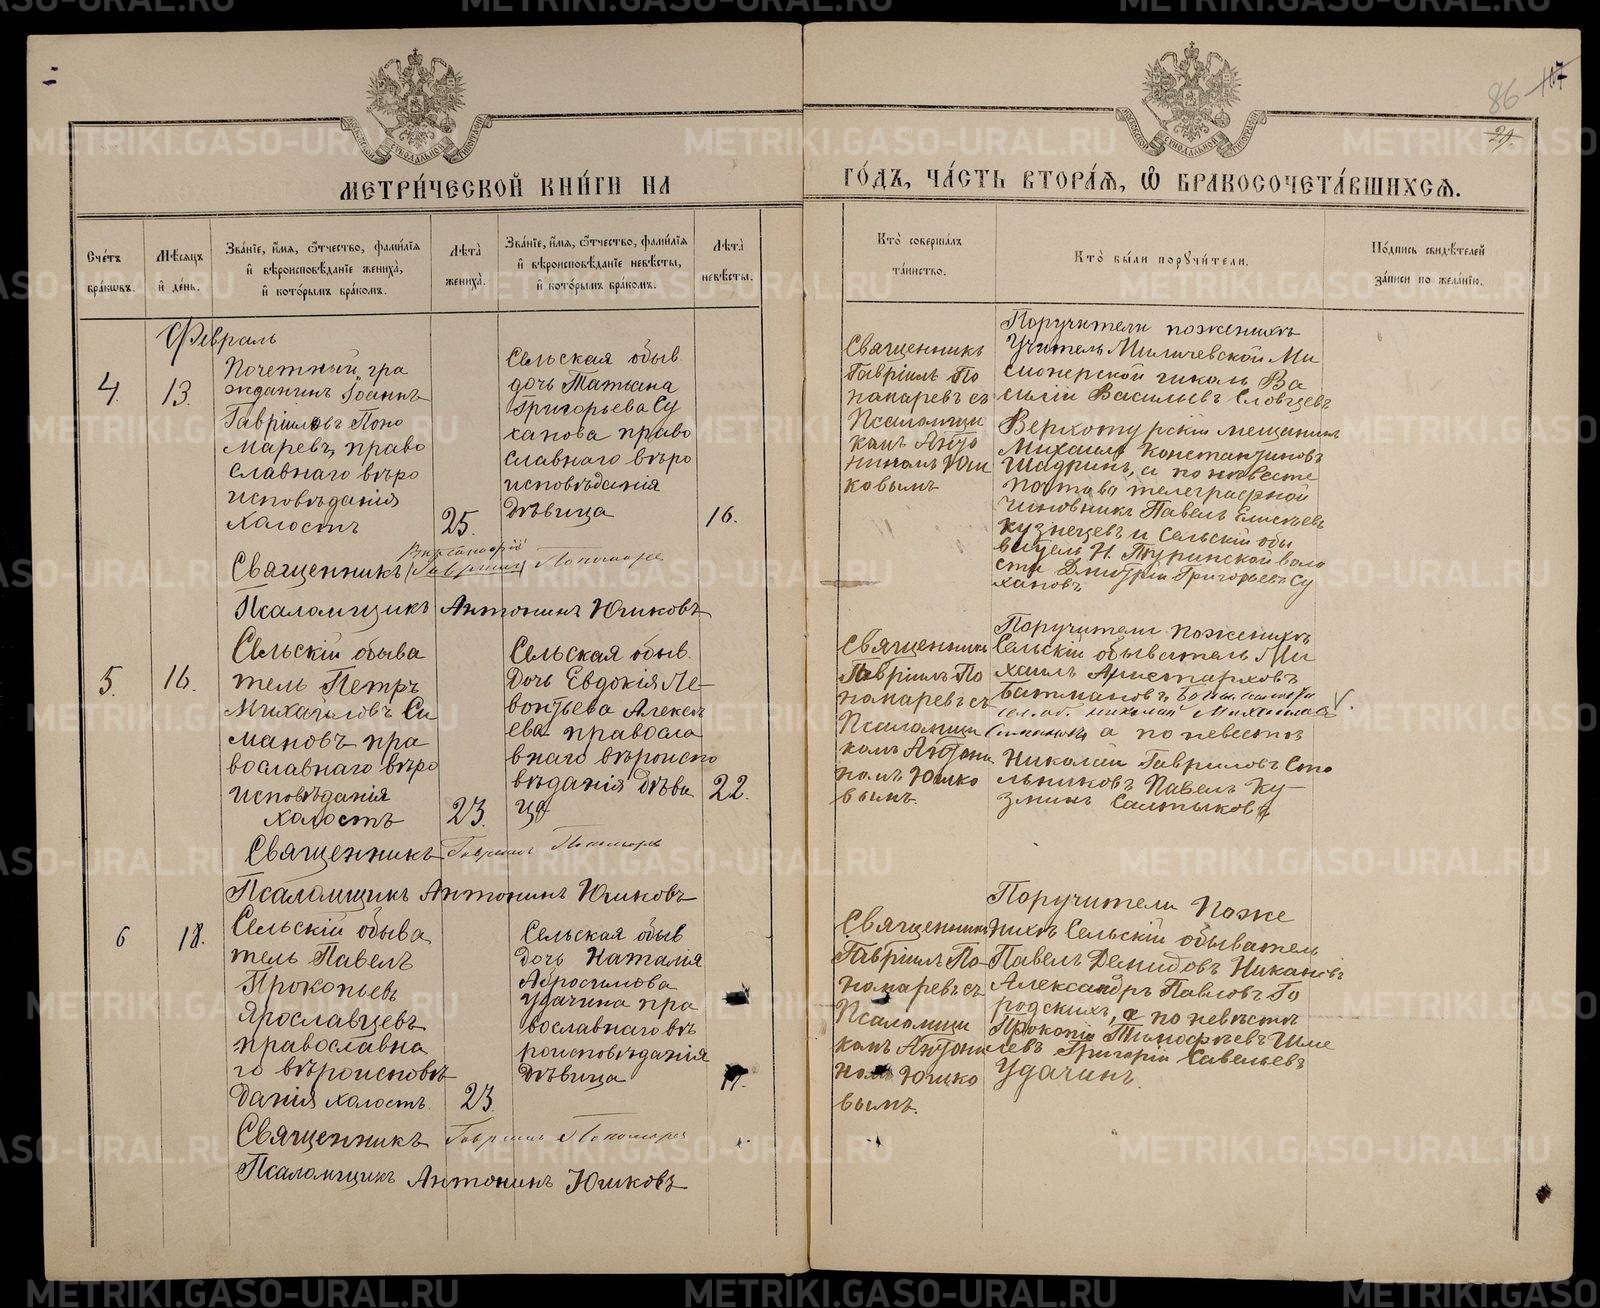 86 117
21.
МЕТРИ́ЧЕСКОЙ КНИ́ГИ НА ГО́ДЪ, ЧА́СТЬ ВТОРА́Я, Ѽ БРАКОСОЧЕТА́ВШИХСЯ.
Сче́тъ бра́ковъ.
Мѣ́сяцъ и҆ де́нь.
Зва́нїе, и҆́мя, ѻ҆́тчество, фами́лїя и҆ вѣроисповѣ́данїе жениха̀, и҆ кото́рымъ бра́комъ.
Лѣта̀ жениха̀.
Зва́нїе, и҆́мя, ѻ҆́тчество, фами́лїя и҆ вѣроисповѣ́данїе невѣ́сты, и҆ кото́рымъ бра́комъ.
Лѣта̀ невѣ́сты.
Кто̀ соверша́лъ та́инство.
Кто̀ бы́ли порꙋчи́тели.
По́дпись свидѣ́телей за́писи по жела́нїю.
Февраль
4.
13.
Почетный гра
жданинъ Іоаннъ
Гавріиловъ Поно
маревъ, право
славнаго вѣро
исповѣданія
холостъ
25.
Сельская обыв
дочь Татіана
Григорьева Су
ханова право
славнаго вѣро
исповѣданія
дѣвица
16.
Священникъ
Гавріилъ По
номаревъ съ
Псаломщи
комъ Анто
ниномъ Юш
ковымъ
Поручители по женихѣ
Учитель Миличевской Ми
сіонерской школы Ва
силій Васильевъ Словцевъ
Верхотурскій мещанинъ
Михаилъ Константиновъ
Шадринъ, а по невесте
Почтово телеграфной
чиновникъ Павелъ Елисѣевъ
Кузнецевъ и Сельскій обы
ватель Н. Туринской воло
сти Дмитрій Григорьевъ Су
хановъ,
Священникъ Гавріилъ Пономарев
Псаломщикъ Антонинъ Юшковъ
5.
16.
Сельскій обыва
тель Петръ
Михайловъ Си
мановъ пра
вославнаго вѣро
исповѣданія
холостъ
23.
Сельская обыв.
дочь Евдокія Ле-
вонтьева Алексѣ
ева правосла
внаго вѣроиспо
вѣданія дѣви
ца
22.
Священникъ
Гавріилъ По
номаревъ съ
Псаломщи
комъ Антони
номъ Юшко
вымъ
Поручители по женихѣ
Сельскій обыватель Ми
хаилъ Аристарховъ
Батмановъ
сел. об. Николай Михайловъ V.
Симановъ а по невестѣ
Николай Гавриловъ Сто
льниковъ Павелъ Ку-
зминъ Салтыковъ
Священникъ Гавріилъ Пономарев
Псаломщикъ Антонинъ Юшковъ
6
18.
Сельскій обыва
тель Павелъ
Прокопьевъ
Ярославцевъ
православна
го вѣроисповѣ
данія холостъ
23.
Сельская обыв
дочь Наталія
Абросимова
Удачина пра
вославнаго вѣ
роисповѣданія
дѣвица
17.
Священникъ
Гавріилъ По-
номаревъ съ
Псаломщи
комъ Антони
номъ Юшко
вымъ.
Поручители по же
нихѣ Сельскій обыватель
Павелъ Демидовъ Никановъ
Александръ Павловъ Го
родскихъ, а по невѣстѣ
Прокопій Тимофѣевъ Шме
левъ Григорій Савельевъ
Удачинъ.
Священникъ Гавріилъ Пономарев
Псаломщикъ Антонинъ Юшковъ
METRIKI.GASO-URAL.RU